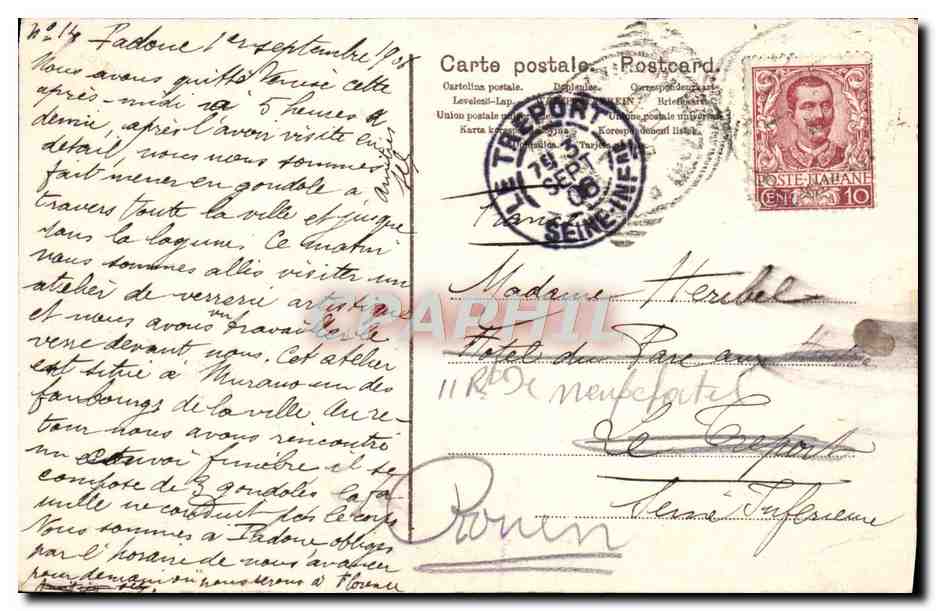 No 14 Padoue 1er septembre 1908
Nous avons quitté Venise cette
après-midi à 5 heures &
demie, après l'avoir visité en
detail, nous nous sommes
fait mener en gondole a
travers toute la ville et jusque
dans la lagune. Ce matin
nous sommes allés visiter un
atelier de verrerie artistique
et nous avons vu travailler le
verre devant nous. Cet atelier
est situé à Murano un des
faubourgs de la ville Au re-
tour nous avons rencontré
un convoi funèbre il se
compose de 3 gondoles la fa-
mille ne conduit pas le corps
Nous sommes à Padoue obligés
par l'horaire de nous avancer
pour demain où nous serons à Florence
Amitiés
Carte postale. Postcard.
Cartolina postale. Dopisnice. Correspondenzkarte
Levelezö-Lap. Briefkaart
Union postale universelle
Karta korespondencyjna Korespondencni listek.
Tarjeta
LE TREPORT
3
SEPT
08
SEINE-INFRE
POSTE ITALIANE
CENT. 10
France
Madame Heribel
Hôtel du Parc aux
11 Rte De neufchatel
Le Treport
Rouen
Seine Inférieure
CPAPHIL